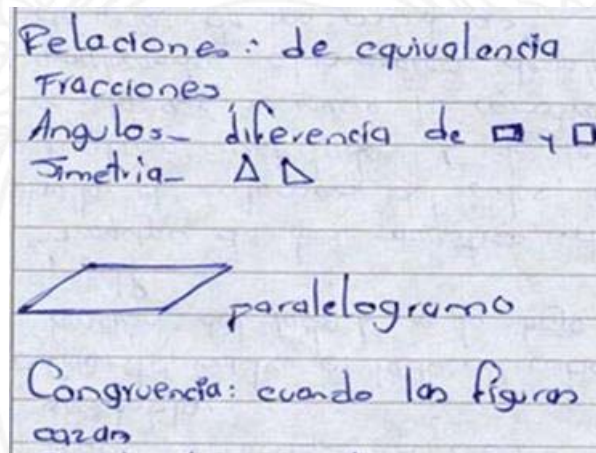 Relaciones: de equivalencia
Fracciones
Angulos- diferencia de y
Simetria-
paralelogramo
Congruencia: cuando las figuras
cazan